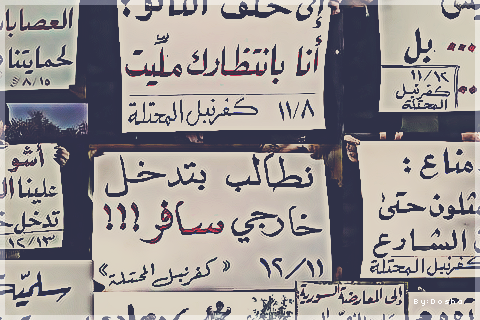 إلى حلف الناتو:
أنا بانتظارك ملّيت
١١/٨ كفرنبل المحتلة
العصابا
لحمايتنا
٨/١٥
... بل
١١/١٢
كفرنبل
المحتلة
نطالب بتدخل
خارجي سافر !!!
١٢/١١ «كفرنبل المحتلة»
علينا
تدخل
١٢/١٣
سلميّة
مناع :
حتى
الشارع
كفرنبل المحتلة
إلى المعارضة السورية
By:Dosha